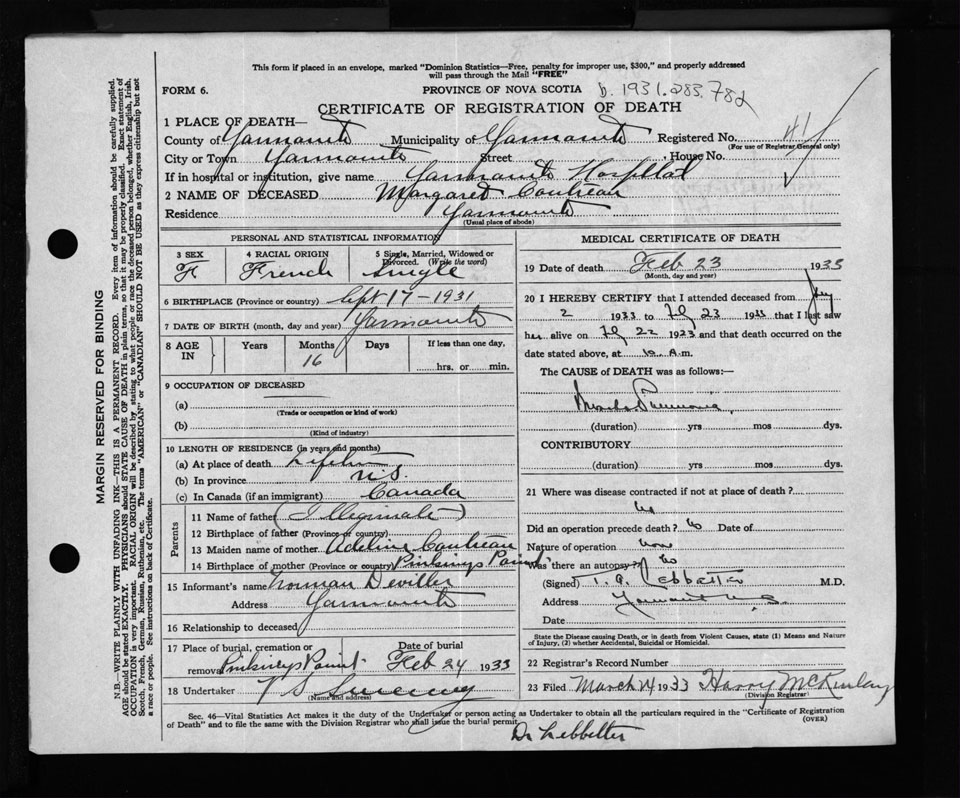 This form if placed in an envelope, marked "Dominion Statistics—Free, penalty for improper use, $300," and properly addressed
will pass through the Mail "FREE"
FORM 6.
PROVINCE OF NOVA SCOTIA
CERTIFICATE OF REGISTRATION OF DEATH
1 PLACE OF DEATH—
County of Yarmouth Municipality of Yarmouth Registered No. 41
(For use of Registrar General only)
City or Town Yarmouth Street House No.
If in hospital or institution, give name Yarmouth Hospital
2 NAME OF DECEASED Margaret
Residence Yarmouth
(Usual place of abode)
PERSONAL AND STATISTICAL INFORMATION
3 SEX 4 RACIAL ORIGIN 5 Single, Married, Widowed or
Divorced. (Write the word)
F French Single
6 BIRTHPLACE (Province or country) Sept 17-1931
7 DATE OF BIRTH (month, day and year) Yarmouth
8 AGE IN Years Months Days If less than one day,
16 hrs. or min.
9 OCCUPATION OF DECEASED
(a)
(Trade or occupation or kind of work)
(b)
(Kind of industry)
10 LENGTH OF RESIDENCE (in years and months)
(a) At place of death
(b) In province N.S.
(c) In Canada (if an immigrant) Canada
Parents
11 Name of father (Illegimate)
12 Birthplace of father (Province or country)
13 Maiden name of mother Adeline
14 Birthplace of mother (Province or country)
15 Informant's name Norman
Address Yarmouth
16 Relationship to deceased
17 Place of burial, cremation or Date of burial
removal Feb 24 1933
18 Undertaker V S Sweeny
(Name and address)
MEDICAL CERTIFICATE OF DEATH
19 Date of death Feb 23 1933
(Month, day and year)
20 I HEREBY CERTIFY that I attended deceased from
2 1933 to 23 1933 that I last saw
her alive on 22 1923 and that death occurred on
date stated above, at 10 A.m.
The CAUSE of DEATH was as follows:—
Pneumonia
(duration) yrs mos dys.
CONTRIBUTORY
(duration) yrs mos dys.
21 Where was disease contracted if not at place of death?
Did an operation precede death? No Date of
Nature of operation none
Was there an autopsy? No
(Signed) M.D.
Address Yarmouth N.S.
Date
State the Disease causing Death, or in death from Violent Causes, state (1) Means and Nature
of Injury, (2) whether Accidental, Suicidal or Homicidal.
22 Registrar's Record Number
23 Filed March 14 1933 Harry McKinlay
(Division Registrar)
Sec. 46—Vital Statistics Act makes it the duty of the Undertaker or person acting as Undertaker to obtain all the particulars required in the "Certificate of Registration
of Death" and to file the same with the Division Registrar who shall issue the burial permit.
(OVER)
MARGIN RESERVED FOR BINDING
N.B.—WRITE PLAINLY WITH UNFADING INK—THIS IS A PERMANENT RECORD. Every item of information should be carefully supplied.
AGE should be stated EXACTLY. PHYSICIANS should STATE CAUSE OF DEATH in plain terms, so that it may be properly classified. Exact statement of
OCCUPATION is very important. RACIAL ORIGIN will be described by stating to what people or race the deceased person belonged, whether English, Irish,
Scotch, French, German, Russian, Ruthenian, etc. The terms "AMERICAN" or "CANADIAN" SHOULD NOT BE USED as they express citizenship but not
a race or people. See instructions on back of Certificate.